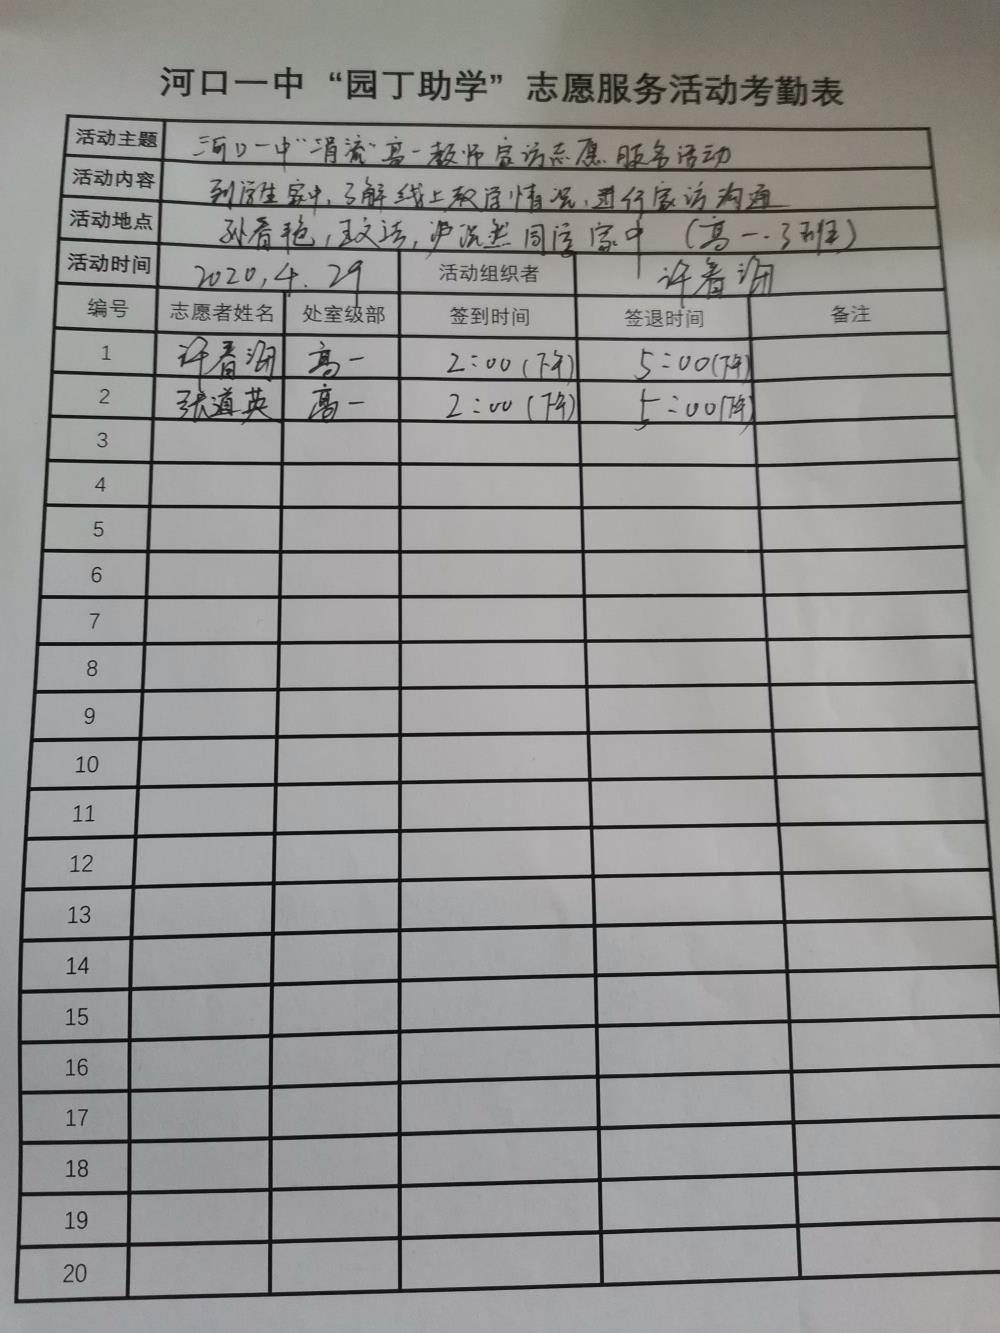 河口一中 “园丁助学” 志愿服务活动考勤表
活动主题 河口一中“涓流”高一教师家访志愿服务活动
活动内容 到学生家中，了解线上教学情况，进行家访沟通
活动地点 孙春艳，王文洁， 同学家中（高一.3班）
活动时间 2020.4.29 活动组织者 许春
编号 志愿者姓名 处室级部 签到时间 签退时间 备注
1 许春 高一 2:00（下午） 5:00（下午）
2 张道英 高一 2:00（下午） 5:00（下午）
3
4
5
6
7
8
9
10
11
12
13
14
15
16
17
18
19
20